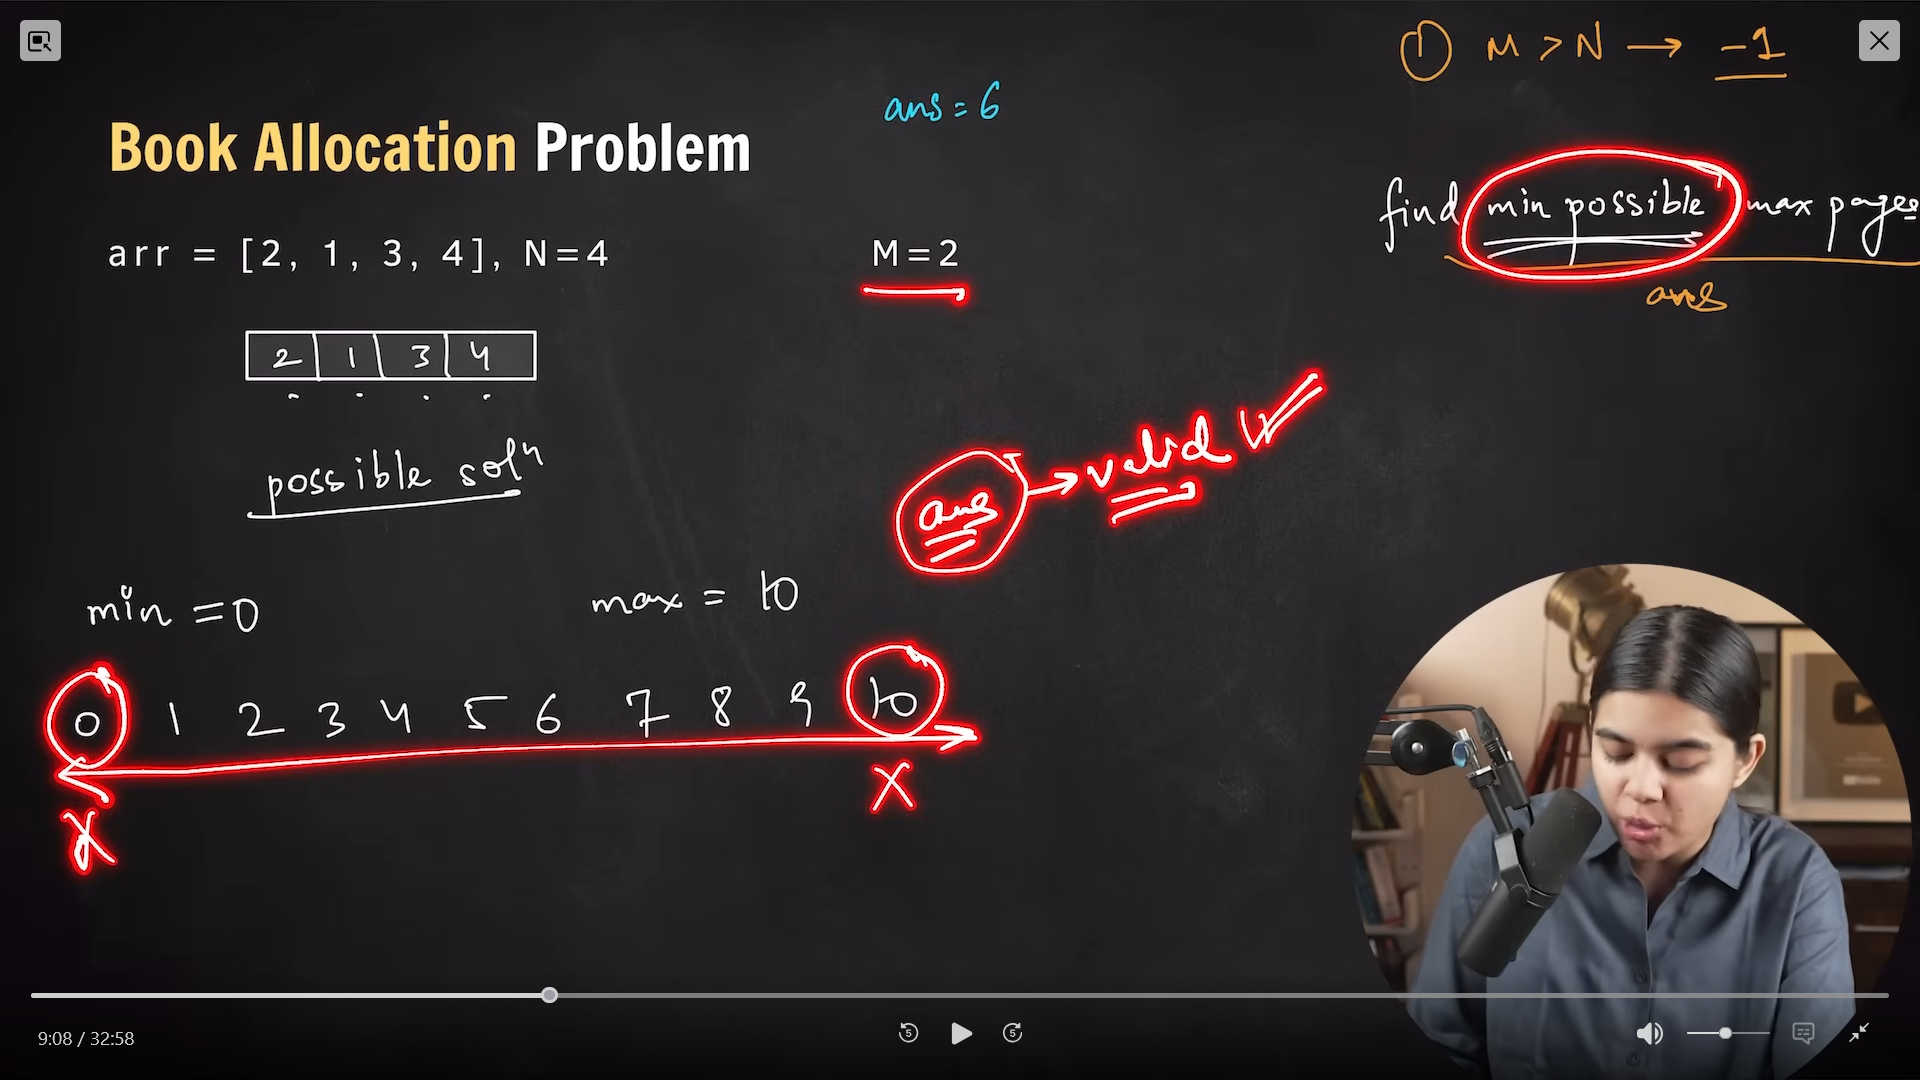 ① M > N → -1
ans = 6
Book Allocation Problem
find min possible max pages
arr = [2, 1, 3, 4], N=4 M=2
ans
2 1 3 4
possible soln
ans → valid
min = 0 max = 10
0 1 2 3 4 5 6 7 8 9 10
X X
9:08 / 32:58
5 5